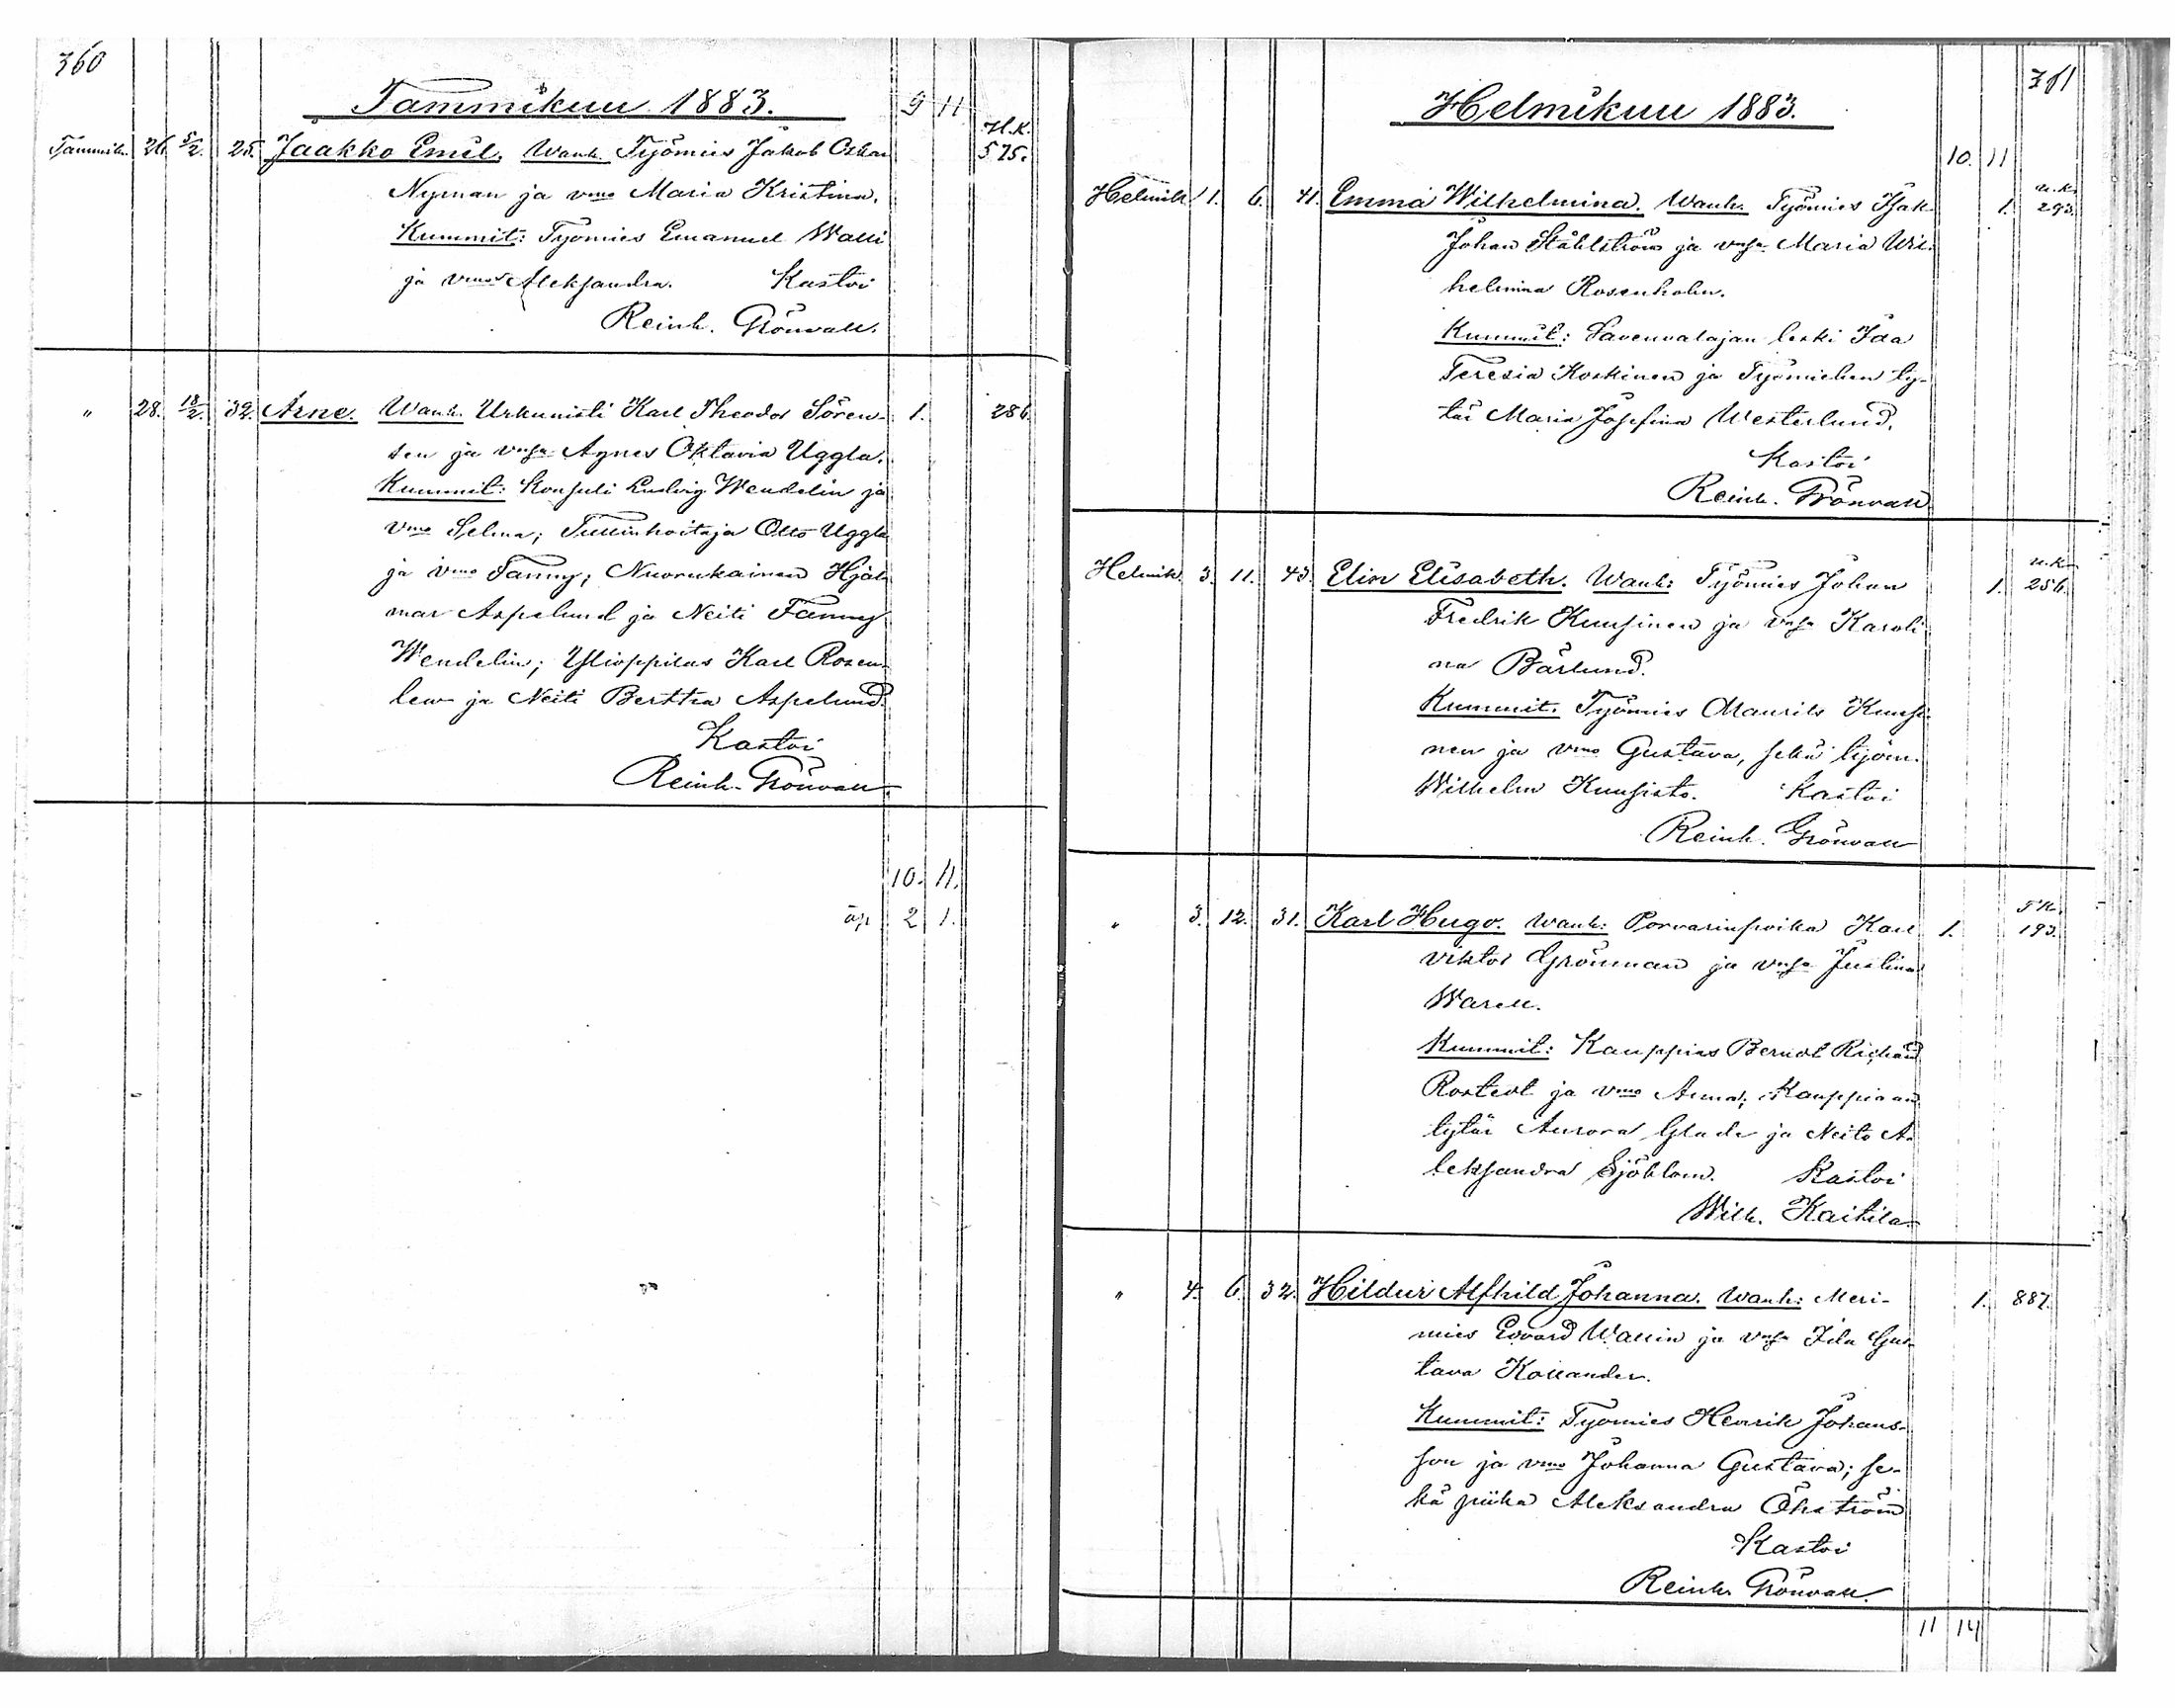 360
Tammikuu 1883.
9 11
H.K.
Tammik. 26. 5/2. 25. Jaakko Emil. Wanh. Työmies Jakob Oskar 575.
Nyman ja vmo Maria Kristina.
Kummit: Työmies Emanuel Walli
ja vmo Aleksandra. Kastoi
Reinh. Grönvall.
" 28. 18/2. 32. Arne. Wanh. Urkunisti Karl Theodor Sören- 1. 286.
sen ja vnsa Agnes Oktavia Uggla.
Kummit: Konsuli Ludvig Wendelin ja
vmo Selma; Tullinhoitaja Otto Uggla
ja vmo Fanny; Nuorukainen Hjal-
mar Aspelund ja Neiti Fanny
Wendelin; Ylioppilas Karl Rosen-
lew ja Neiti Berttha Aspelund.
Kastoi
Reinh. Grönvall
10. 11.
äp 2 1.
361
Helmikuu 1883.
10. 11
u.k.
Helmik. 1. 6. 41. Emma Wilhelmina. Wanh. Työmies Isak 1. 293.
Johan Ståhlström ja vnsa Maria Wil-
helmina Rosenholm.
Kummit: Savenvalajan leski Ida
Teresia Koskinen ja Työmiehen ty-
tär Maria Josefina Westerlund.
Kastoi
Reinh. Grönvall
u.k.
Helmik. 3. 11. 43. Elin Elisabeth. Wanh: Työmies Johan 1. 256.
Fredrik Kuusinen ja vnsa Karoli-
na Bärlund.
Kummit. Työmies Maurits Kuusi-
nen ja vmo Gustava, sekä työm.
Wilhelm Kuusisto. Kastoi
Reinh. Grönvall
" 3. 12. 31. Karl Hugo. Wanh: Porvarinpoika Karl 1. 193.
Viktor Grönman ja vnsa Justina
Warell.
Kummit: Kauppias Berndt Richard
Rostedt ja vmo Anna; Kauppiaan
tytär Aurora Glade ja Neito A-
leksandra Sjöblom. Kastoi
Wilh. Kaikila
" 4. 6. 32. Hildur Alfhild Johanna. Wanh: Meri- 1. 887.
mies Edvard Wallin ja vnsa Ida Gus-
tava Kollander.
Kummit: Työmies Henrik Johans-
son ja vmo Johanna Gustava; se-
kä piika Aleksandra Öhrström
Kastoi
Reinh. Grönvall.
11 14